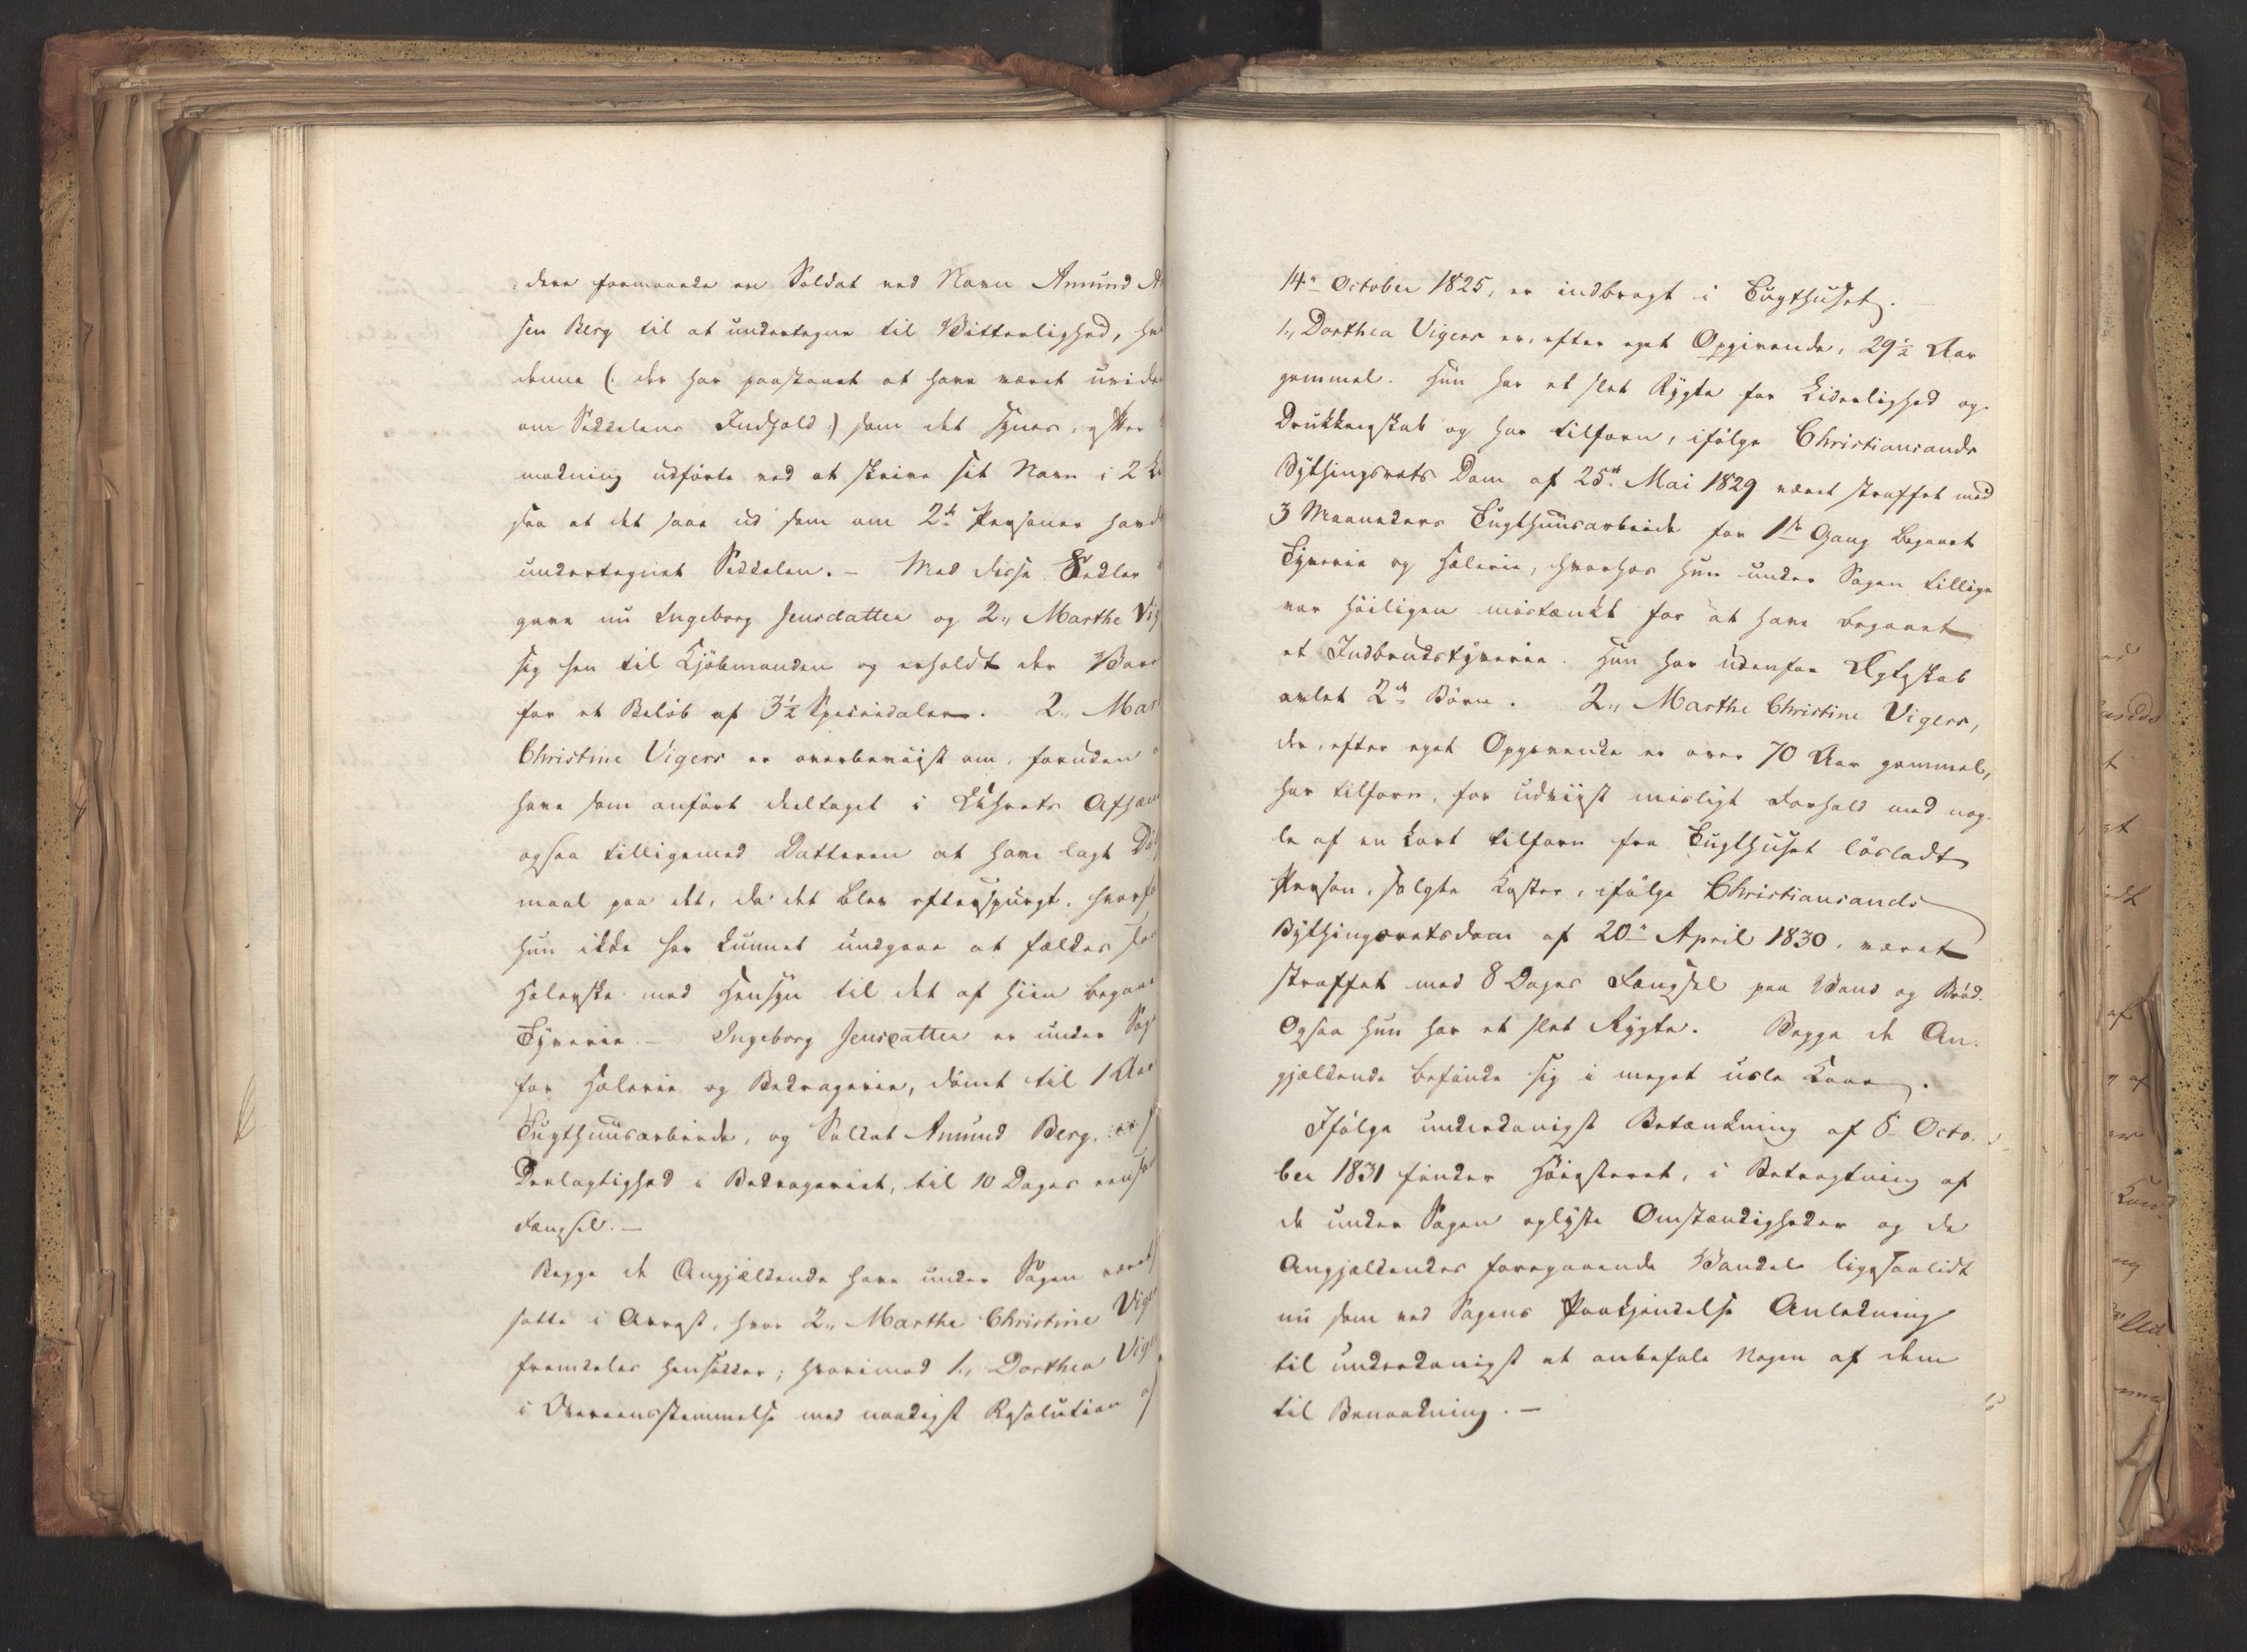 dere formaaede en Soldat ved Navn Amund A
sen Berg til at undertegne til Vitterlighed, hv
denne (: der har paastaaet at have været uvide
om Seddelens Indhold :) som det synes, efter
modning udførte ved at skrive sit Navn i 2
saa at det saae ud som om 2de Personer havd
undertegnet Seddelen. – Med disse Sedler
gave nu Ingeborg Jensdatter og 2., Marthe Vig
sig hen til Kjøbmanden og erholdt der Vare
for et Beløb af 3½ Speciedaler. 2., Mar
Christine Vigers er overbeviist om, foruden
have som anført deeltaget i Afhæn
ogsaa tilligemed Datteren at have lagt Døl
maal paa det, da det blev efterspurgt, hvorfo
hun ikke har kunnet undgaae at fældes so
Hælerske med Hensyn til det af hiin begaae
Tyverie. – Ingeborg Jensdatter er under Sag
for Hælerie og Bedragerie, dømt til 1 Aar
Tugthuusarbeide, og Soldat Amund Berg, for
Deelagtighed i Bedrageriet, til 10 Dages eens
Fængsel. –
Begge de Angjældende have under Sagen været
satte i Arrest, hvor 2., Marthe Christine Vige
fremdeles hensidder; hvorimod 1., Dorthea Vige
i Overeensstemmelse med naadigst Resolution af
14de October 1825, er indbragt i Tugthuset.
1., Dorthea Vigers er, efter eget Opgivende, 29½ Aar
gammel. Hun har et slet Rygte for Liderlighed og
Drukkenskab og har tilforn, ifølge Christiansands
Bythingsrets Dom af 25de Mai 1829 været straffet med
3 Maaneders Tugthuusarbeide for 1ste Gang begaaet
Tyverie og Hælerie, hvorhos hun under Sagen tillige
var høiligen mistænkt for at have begaaet
et Indbrudstyverie. Hun har udenfor Ægteskab
avlet 2de Børn. 2., Marthe Christine Vigers,
der, efter eget Opgivende er over 70 Aar gammel,
har tilforn, for udviist misligt Forhold med nog-
le af en kort tilforn fra Tugthuset løsladt
Person, solgte Koster, ifølge Christiansands
Bythingsretsdom af 20de April 1830, været
straffet med 8 Dages Fængsel paa Vand og Brød.
Ogsaa hun har et slet Rygte. Begge de An-
gjældende befinde sig i meget usle Kaar.
Ifølge underdanigst Betænkning af 8 Octo-
ber 1831 finder Høiesteret, i Betragtning af
de under Sagen oplyste Omstændigheder og de
Angjældendes foregaaende Vandel ligesaalidt
nu som ved Sagens Paakjendelse Anledning
til underdanigst at anbefale Nogen af dem
til Benaadning. –